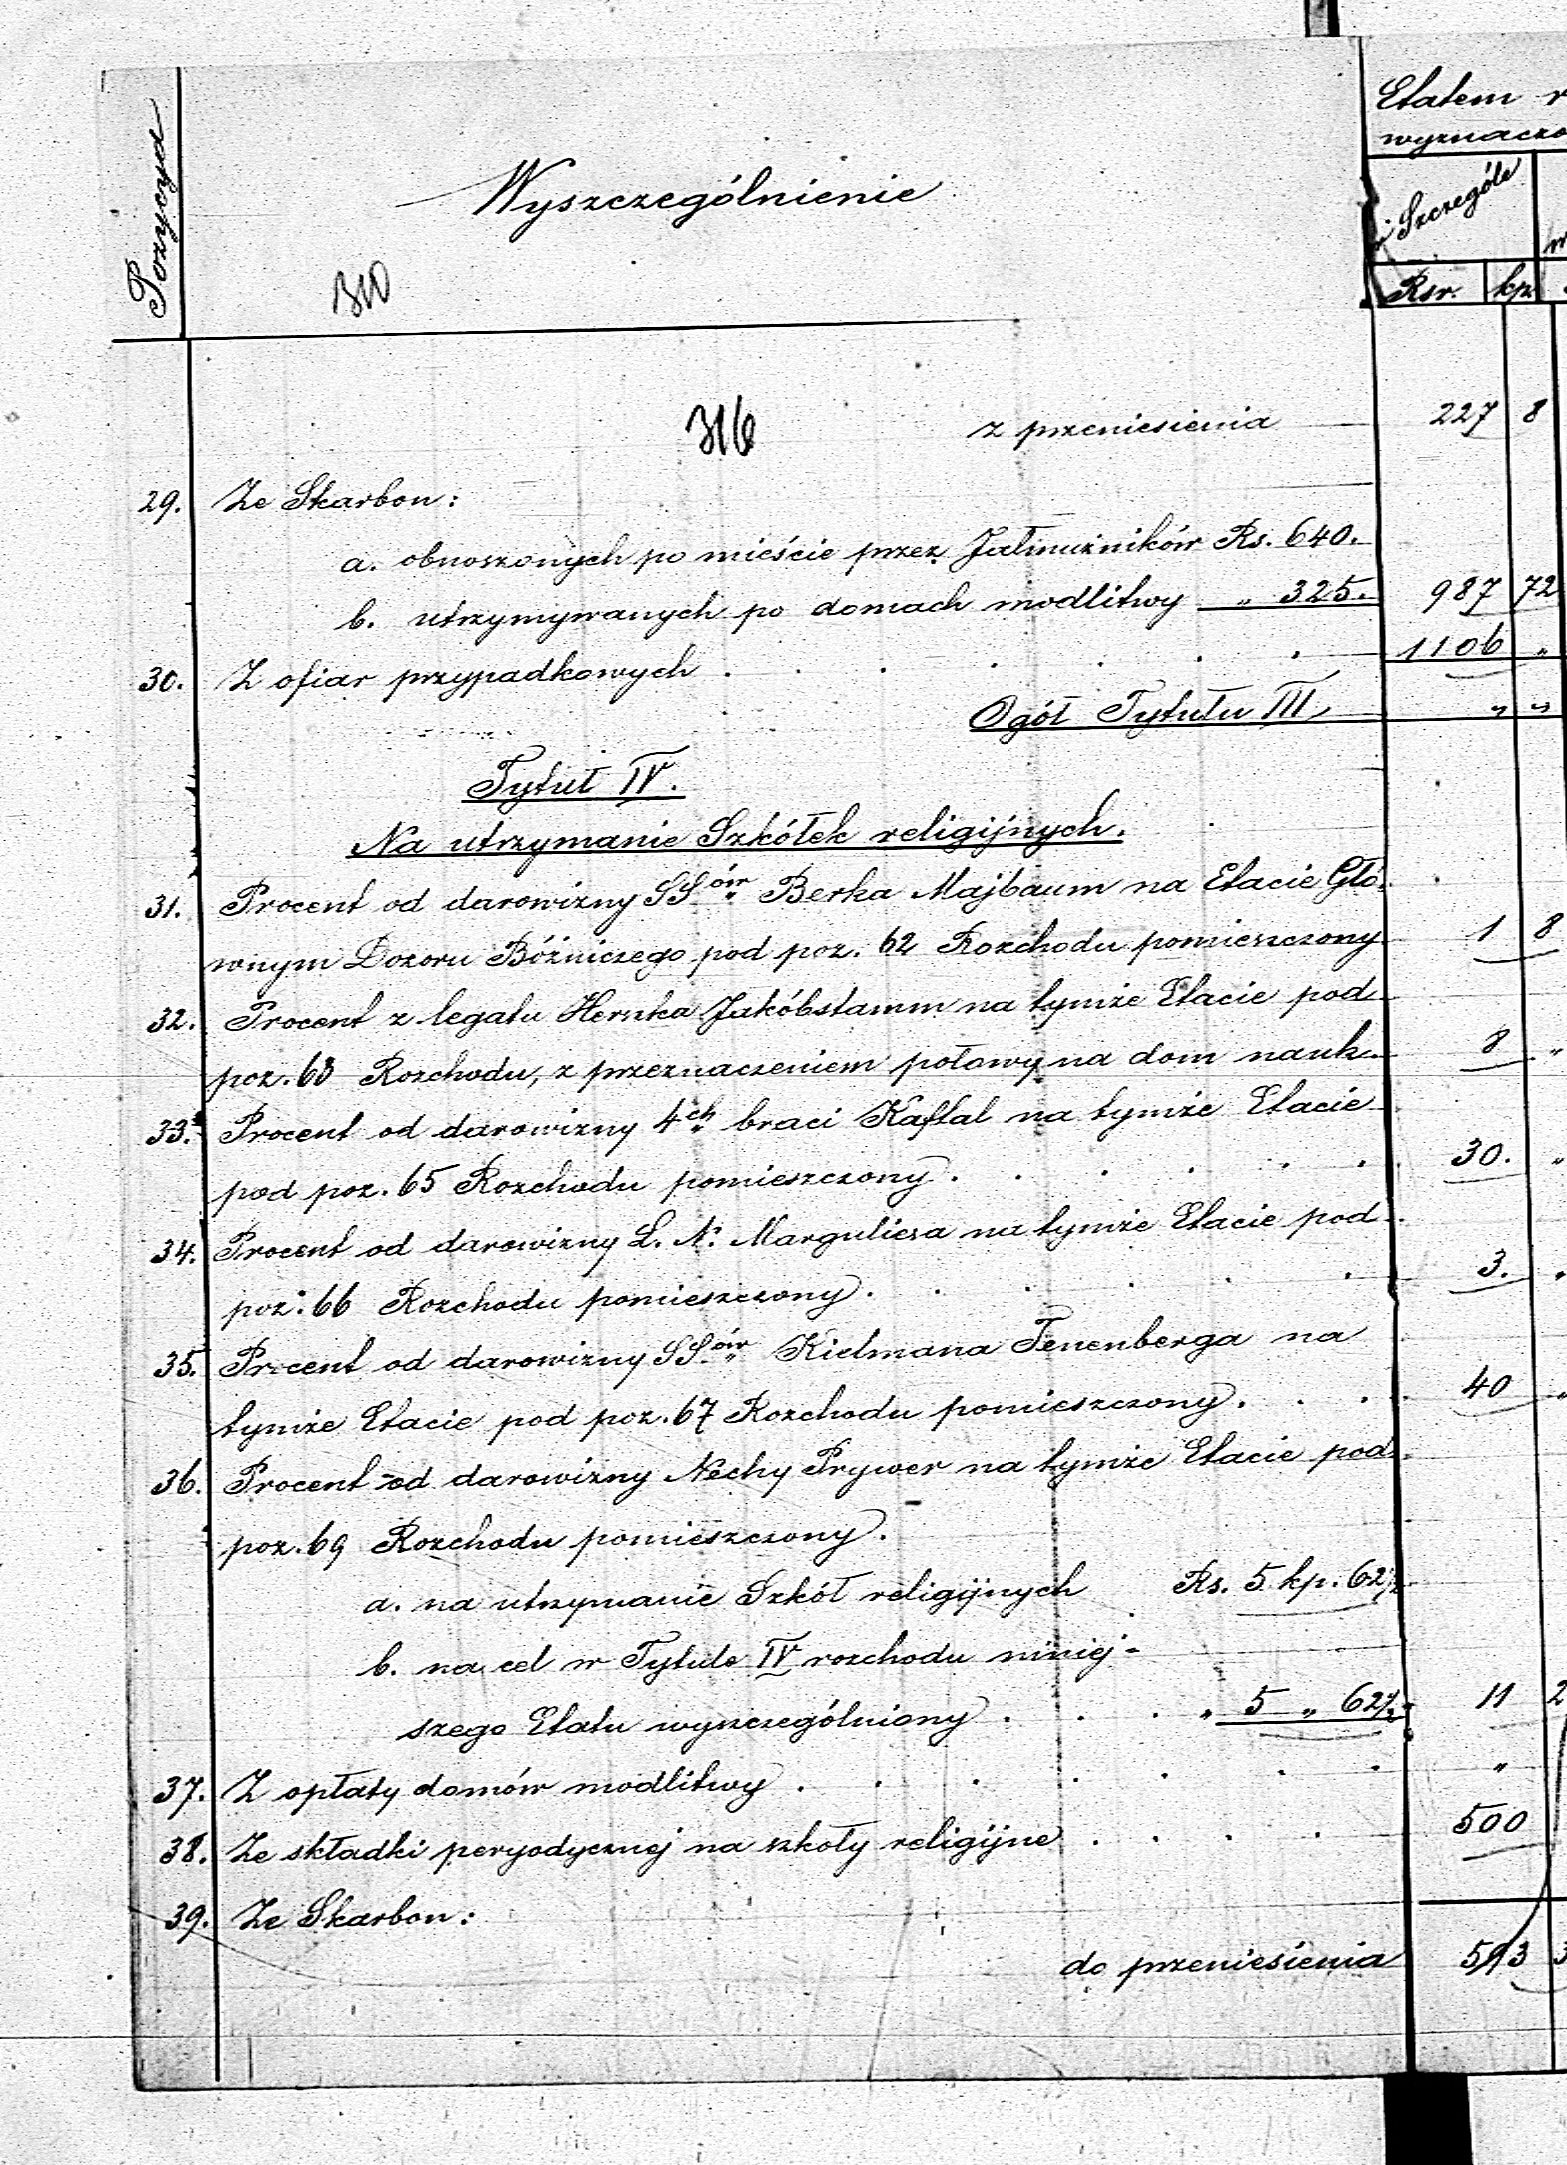 Etatem
wyznaczo
Pozycya
Wyszczególnienie
w Szczególe
Rsr. kp.
310
316 z przeniesienia 227 8
29. Ze Skarbon:
a. obnoszonych po mieście przez Jałmużników Rs. 640.
b. utrzymywanych po domach modlitwy „ 325. 987 72
30. Z ofiar przypadkowych . . . . . . 1106 „
Ogół Tytułu III, „ „
Tytuł IV.
Na utrzymanie Szkółek religijnych.
31. Procent od darowizny SSów Berka Majbaum na Etacie Głó-
wnym Dozoru Bóżniczego pod poz. 62 Rozchodu pomieszczony 1 8
32. Procent z legatu Herszka Jakóbstamm na tymże Etacie pod
poz. 63 Rozchodu, z przeznaczeniem połowy na dom nauk 8 „
33. Procent od darowizny 4ch braci Kaftal na tymże Etacie
pod poz. 65 Rozchodu pomieszczony . . . . . 30. „
34. Procent od darowizny L. N. Marguliesa na tymże Etacie pod
poz. 66 Rozchodu pomieszczony . . . . . 3. „
35. Procent od darowizny SSów Kielmana Tenenberga na
tymże Etacie pod poz. 67 Rozchodu pomieszczony . . . 40 „
36. Procent od darowizny Nechy Prywer na tymże Etacie pod
poz. 69 Rozchodu pomieszczony.
a. na utrzymanie Szkół religijnych Rs. 5 kp. 62½
b. na cel w Tytule IV rozchodu niniej-
szego Etatu wyszczególniony . . . „ 5 „ 62½ 11 2
37. Z opłaty domów modlitwy . . . . . . . „
38. Ze składki peryodycznej na szkoły religijne . . . . 500
39. Ze Skarbon:
do przeniesienia 593 3